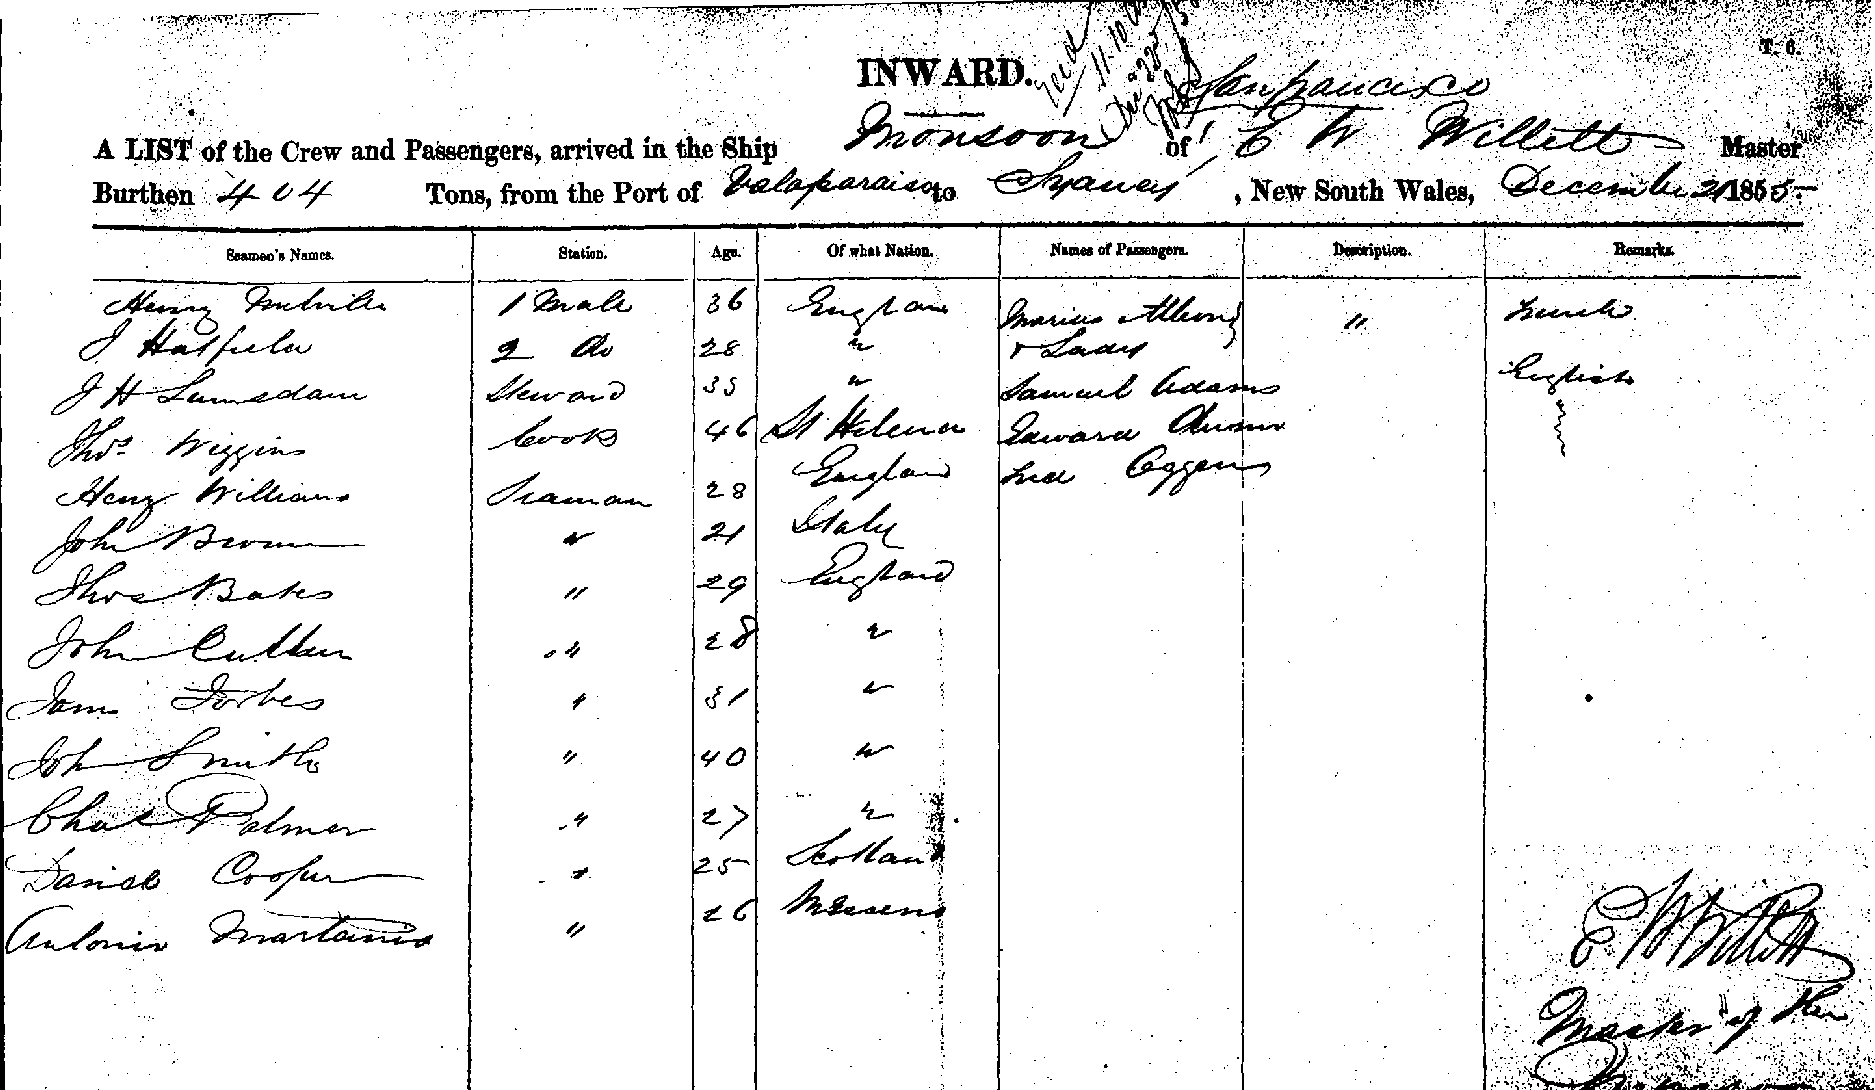 T. 6.
INWARD.
Sanfrancisco
A LIST of the Crew and Passengers, arrived in the Ship Monsoon of E W Willett Master
Burthen 404 Tons, from the Port of Valaparaiso to Sydney, New South Wales, December 21 1855
Seamen's Names. Station. Age. Of what Nation. Names of Passengers. Description. Remarks.
Henry 1 Mate 36 England Marius "
J Hatfield 2 do 28 " & Lady
J H Lumsdam Steward 35 " Samuel Adams English
Thos Wiggins Cook 46 St Helena Edward
Henry Williams Seaman 28 England Fred
John Brown " 21 Italy
Thos Bates " 29 England
John Cullen " 28 "
James Forbes " 31 "
John Smith " 40 "
Chas Palmer " 27 "
Daniel Cooper " 25 Scotland
Antonio " 26
E W Willett
Master of the